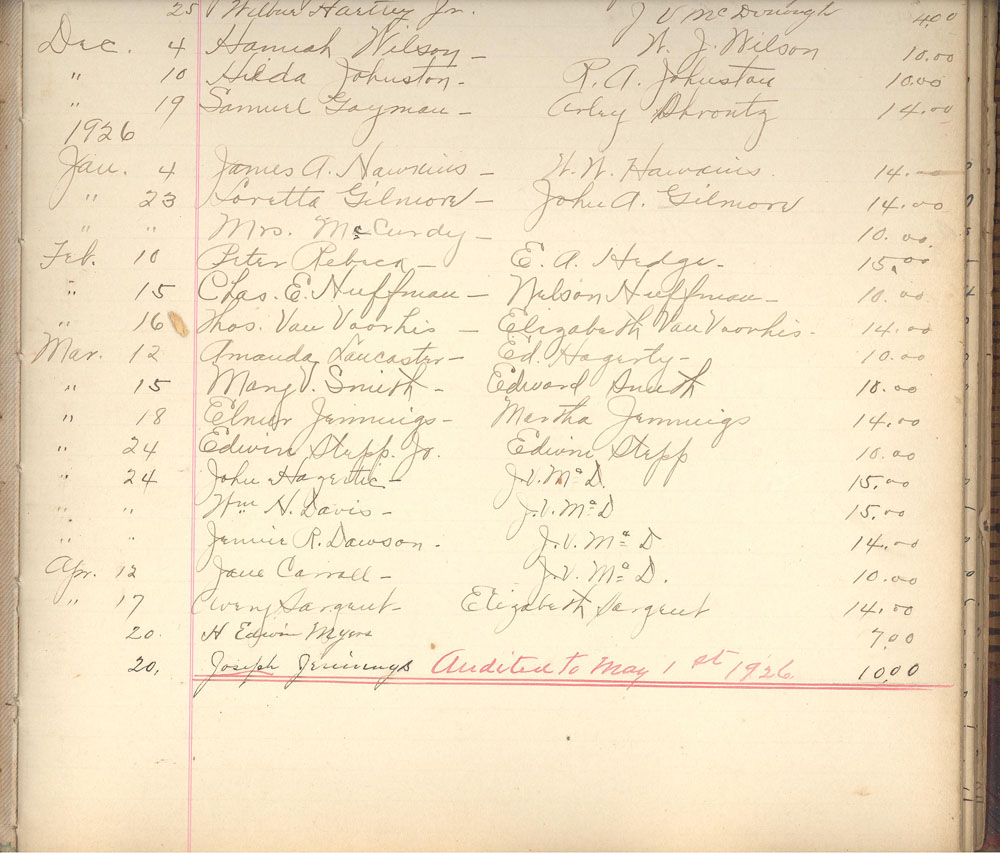 25 Wilbur Hartley Jr. J V McDonough 4.00
Dec. 4 Hannah Wilson - W. J. Wilson 10.00
" 10 Hilda Johnston - R. A. Johnston 10.00
" 19 Samuel Gayman - Arley Shrontz 14.00
1926
Jan. 4 James A. Hawkins - W. W. Hawkins 14.—
" 23 Loretta Gilmore - John A. Gilmore 14.00
" " Mrs. McCurdy - 10.00.
Feb. 10 Peter Rebeck - E. A. Hedge - 15.00
" 15 Chas. E. Huffman - Nelson Huffman - 10.00
" 16 Thos. Van Voorhis - Elizabeth Van Voorhis - 14.00
Mar. 12 Amanda Lancaster - Ed. Hagerty - 10.00
" 15 Mary V. Smith - Edward Smith 10.00
" 18 Elmer Jennings - Martha Jennings 14.00
" 24 Edwin Stepp. Jr. Edwin Stepp 10.00
" 24 John - J.V. McD. 15.00
" " Wm N. Davis - J.V. McD 15.00
" " Jennie R. Dawson - J.V. Mc D 14.00
Apr. 12 Jane Carroll - J.V. Mc D. 10.00
" 17 Sargent - Elizabeth Sargent 14.00
20. H Edwin Myers 7.00
20, Joseph Jennings Audited to May 1st 1926 10.00